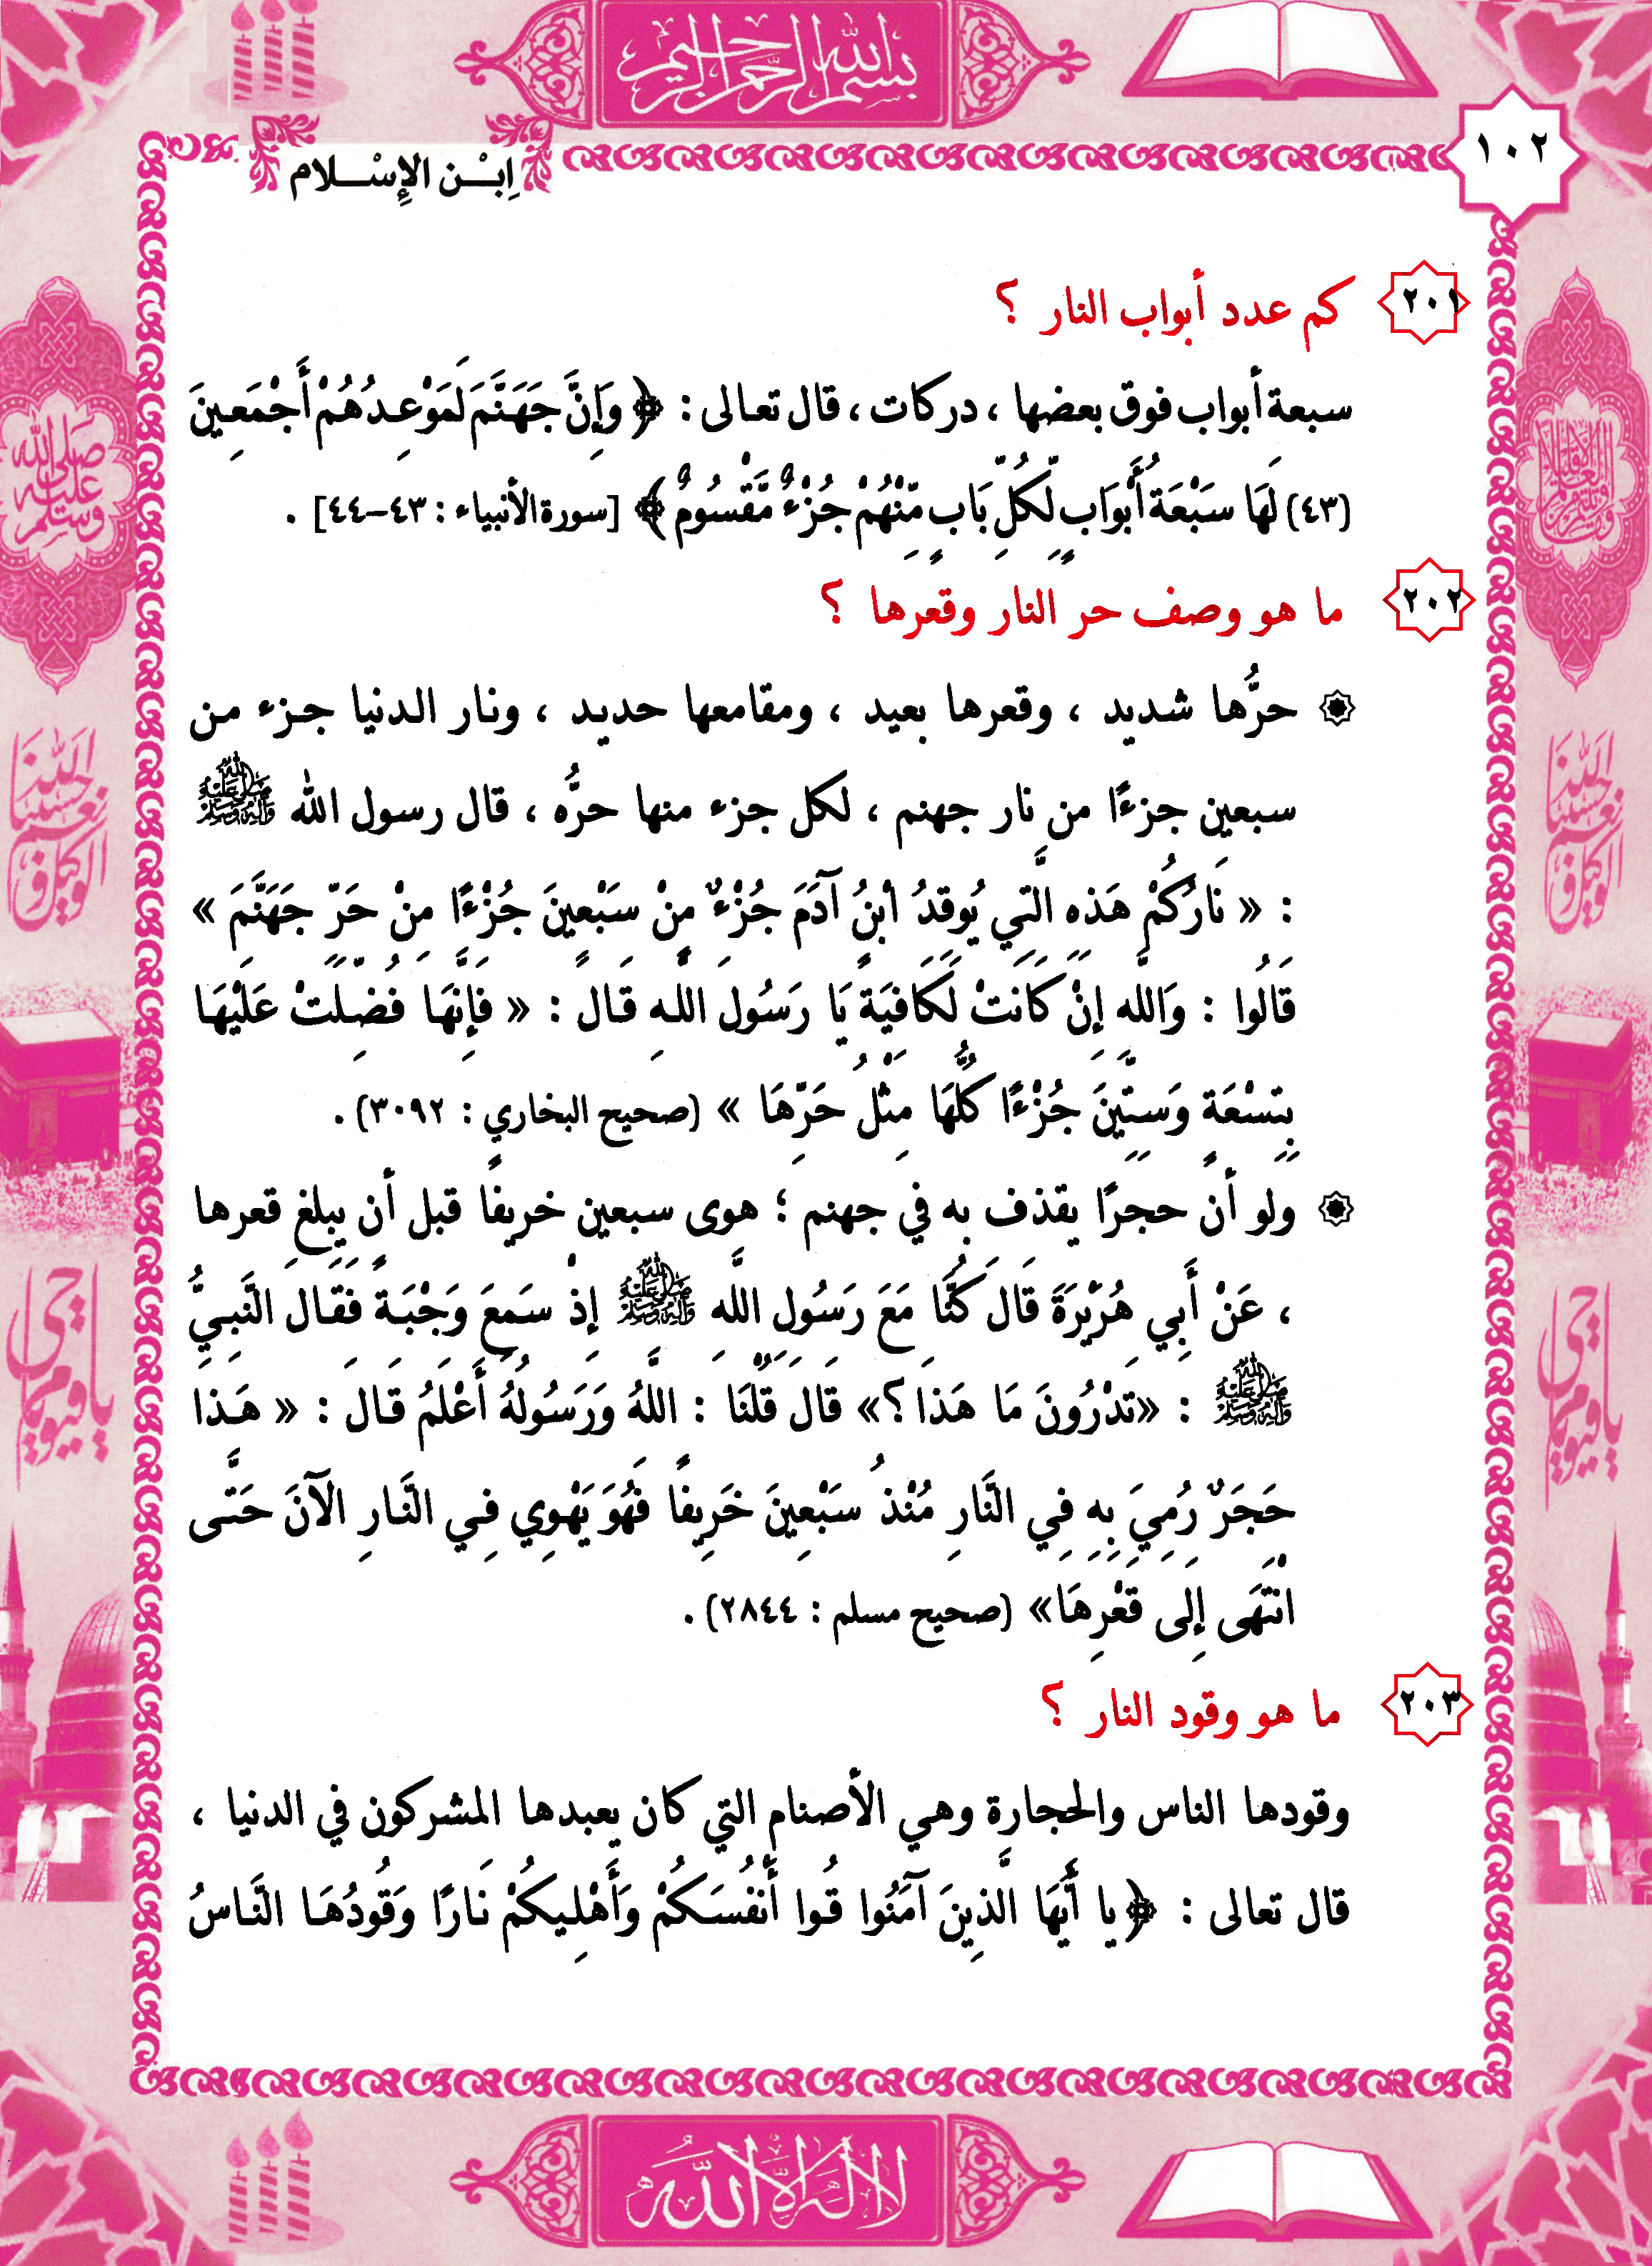 بسم الله الرحمن الرحيم
١٠٢
اِبْــن الإِسْــلام
٢٠١ كم عدد أبواب النار ؟
سبعة أبواب فوق بعضها ، دركات ، قال تعالى : ﴿ وَإِنَّ جَهَنَّمَ لَمَوْعِدُهُمْ أَجْمَعِينَ
(٤٣) لَهَا سَبْعَةُ أَبْوَابٍ لِّكُلِّ بَابٍ مِّنْهُمْ جُزْءٌ مَّقْسُومٌ ﴾ [سورة الأنبياء : ٤٣-٤٤] .
٢٠٢ ما هو وصف حر النار وقعرها ؟
۞ حرُّها شديد ، وقعرها بعيد ، ومقامعها حديد ، ونار الدنيا جزء من
سبعين جزءًا من نار جهنم ، لكل جزء منها حرُّه ، قال رسول الله ﷺ
: « نَارُكُمْ هَذِهِ الَّتِي يُوقِدُ ابْنُ آدَمَ جُزْءٌ مِنْ سَبْعِينَ جُزْءًا مِنْ حَرِّ جَهَنَّمَ »
قَالُوا : وَاللَّهِ إِنْ كَانَتْ لَكَافِيَةً يَا رَسُولَ اللهِ قَالَ : « فَإِنَّهَا فُضِّلَتْ عَلَيْهَا
بِتِسْعَةٍ وَسِتِّينَ جُزْءًا كُلُّهَا مِثْلُ حَرِّهَا » (صحيح البخاري : ٣٠٩٢) .
۞ ولو أن حجرًا يقذف به في جهنم ؛ هوى سبعين خريفًا قبل أن يبلغ قعرها
، عَنْ أَبِي هُرَيْرَةَ قَالَ كُنَّا مَعَ رَسُولِ اللَّهِ ﷺ إِذْ سَمِعَ وَجْبَةً فَقَالَ النَّبِيُّ
ﷺ : «تَدْرُونَ مَا هَذَا ؟» قَالَ قُلْنَا : اللَّهُ وَرَسُولُهُ أَعْلَمُ قَالَ : « هَذَا
حَجَرٌ رُمِيَ بِهِ فِي النَّارِ مُنْذُ سَبْعِينَ خَرِيفًا فَهُوَ يَهْوِي فِي النَّارِ الآنَ حَتَّى
انْتَهَى إِلَى قَعْرِهَا» (صحيح مسلم : ٢٨٤٤) .
٢٠٣ ما هو وقود النار ؟
وقودها الناس والحجارة وهي الأصنام التي كان يعبدها المشركون في الدنيا ،
قال تعالى : ﴿ يا أَيُّهَا الَّذِينَ آمَنُوا قُوا أَنفُسَكُمْ وَأَهْلِيكُمْ نَارًا وَقُودُهَا النَّاسُ
لا إله إلا الله
صلى الله عليه وسلم
حسبنا الله ونعم الوكيل
يا حي يا قيوم